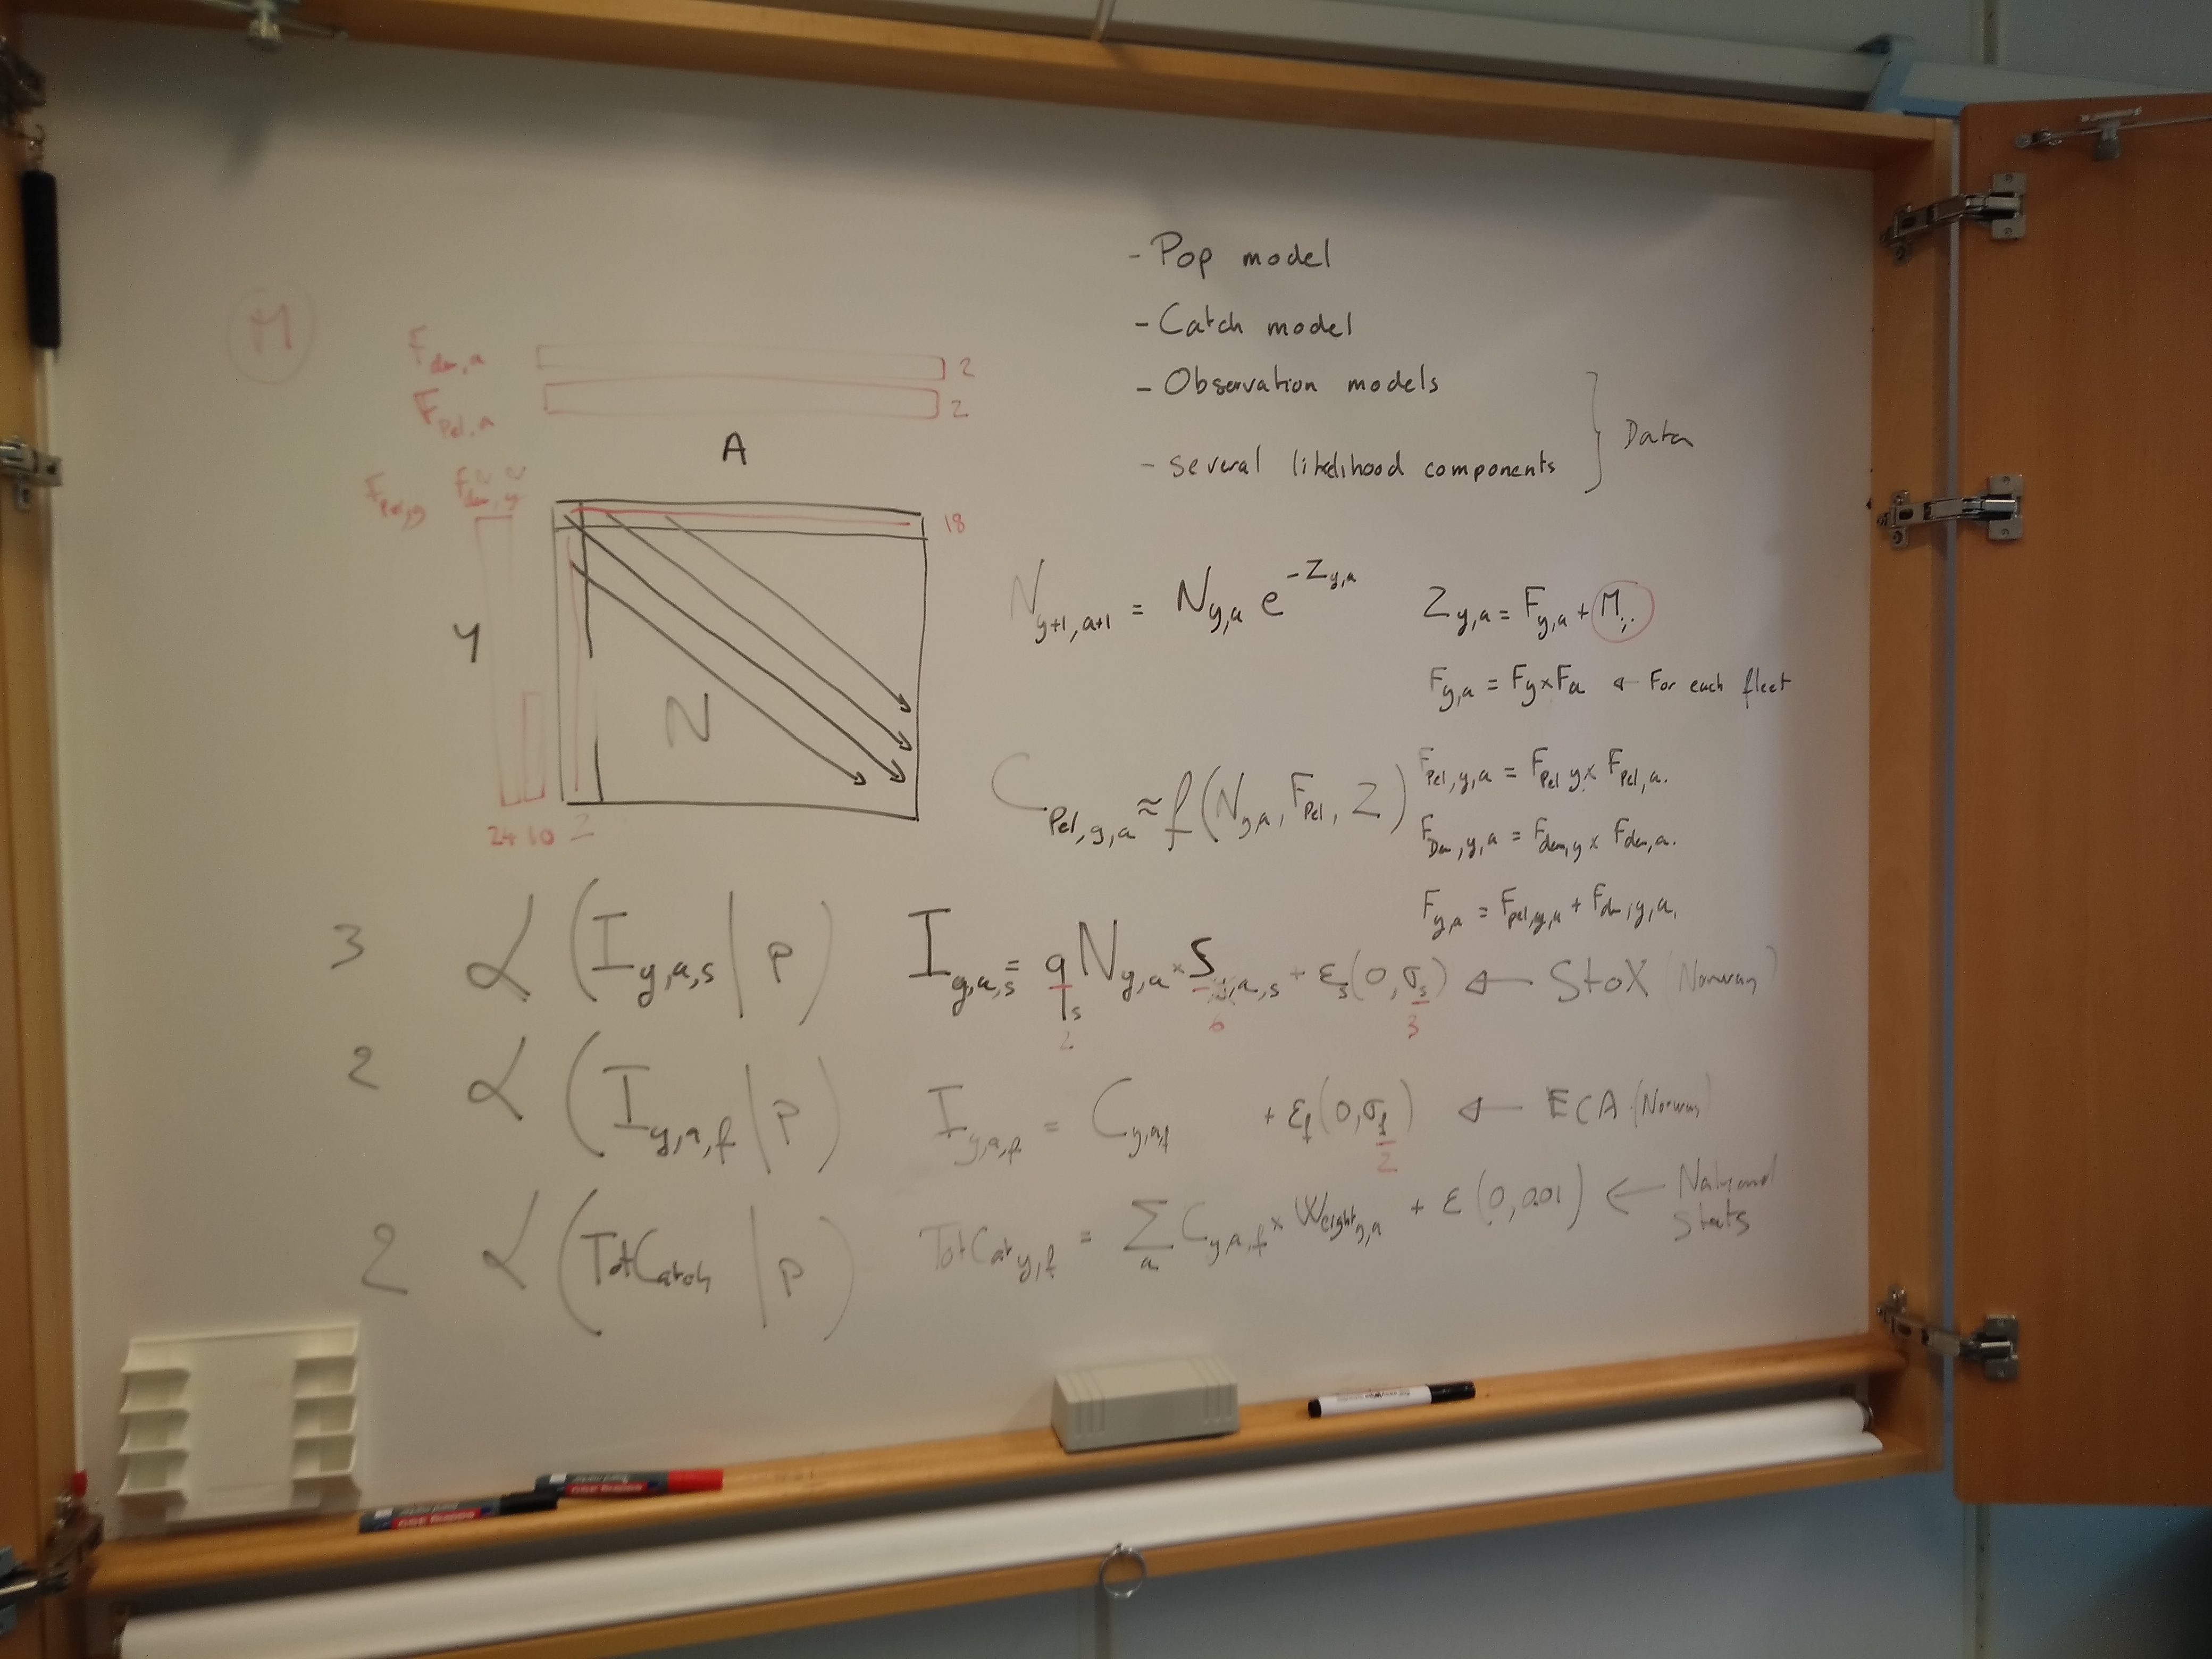 - Pop model
- Catch model
- Observation models
- several likelihood components
Data
M
F_dem,a 2
F_Pel,a 2
A
F_Pel,y F_dem,y
18
Y
N
24 10 2
N_y+1,a+1 = N_y,a e^-Z_y,a
Z_y,a = F_y,a + M
F_y,a = Fy × Fa ← For each fleet
C_Pel,y,a ≈ f(N_y,a, F_Pel, Z)
F_Pel,y,a = F_Pel,y × F_Pel,a.
F_Dem,y,a = F_dem,y × F_dem,a.
F_y,a = F_pel,y,a + F_dem,y,a.
3 L(I_y,a,s | P) I_y,a,s = q_s N_y,a × S_a,s + ε_s(0,σ_s) ← StoX (Norway)
2 6 3
2 L(I_y,a,f | P) I_y,a,f = C_y,a,f + ε_f(0,σ_f) ← ECA (Norway)
2
2 L(TotCatch | P) TotCat_y,f = Σ_a C_y,a,f × Weight_y,a + ε(0,0.01) ← National Stats